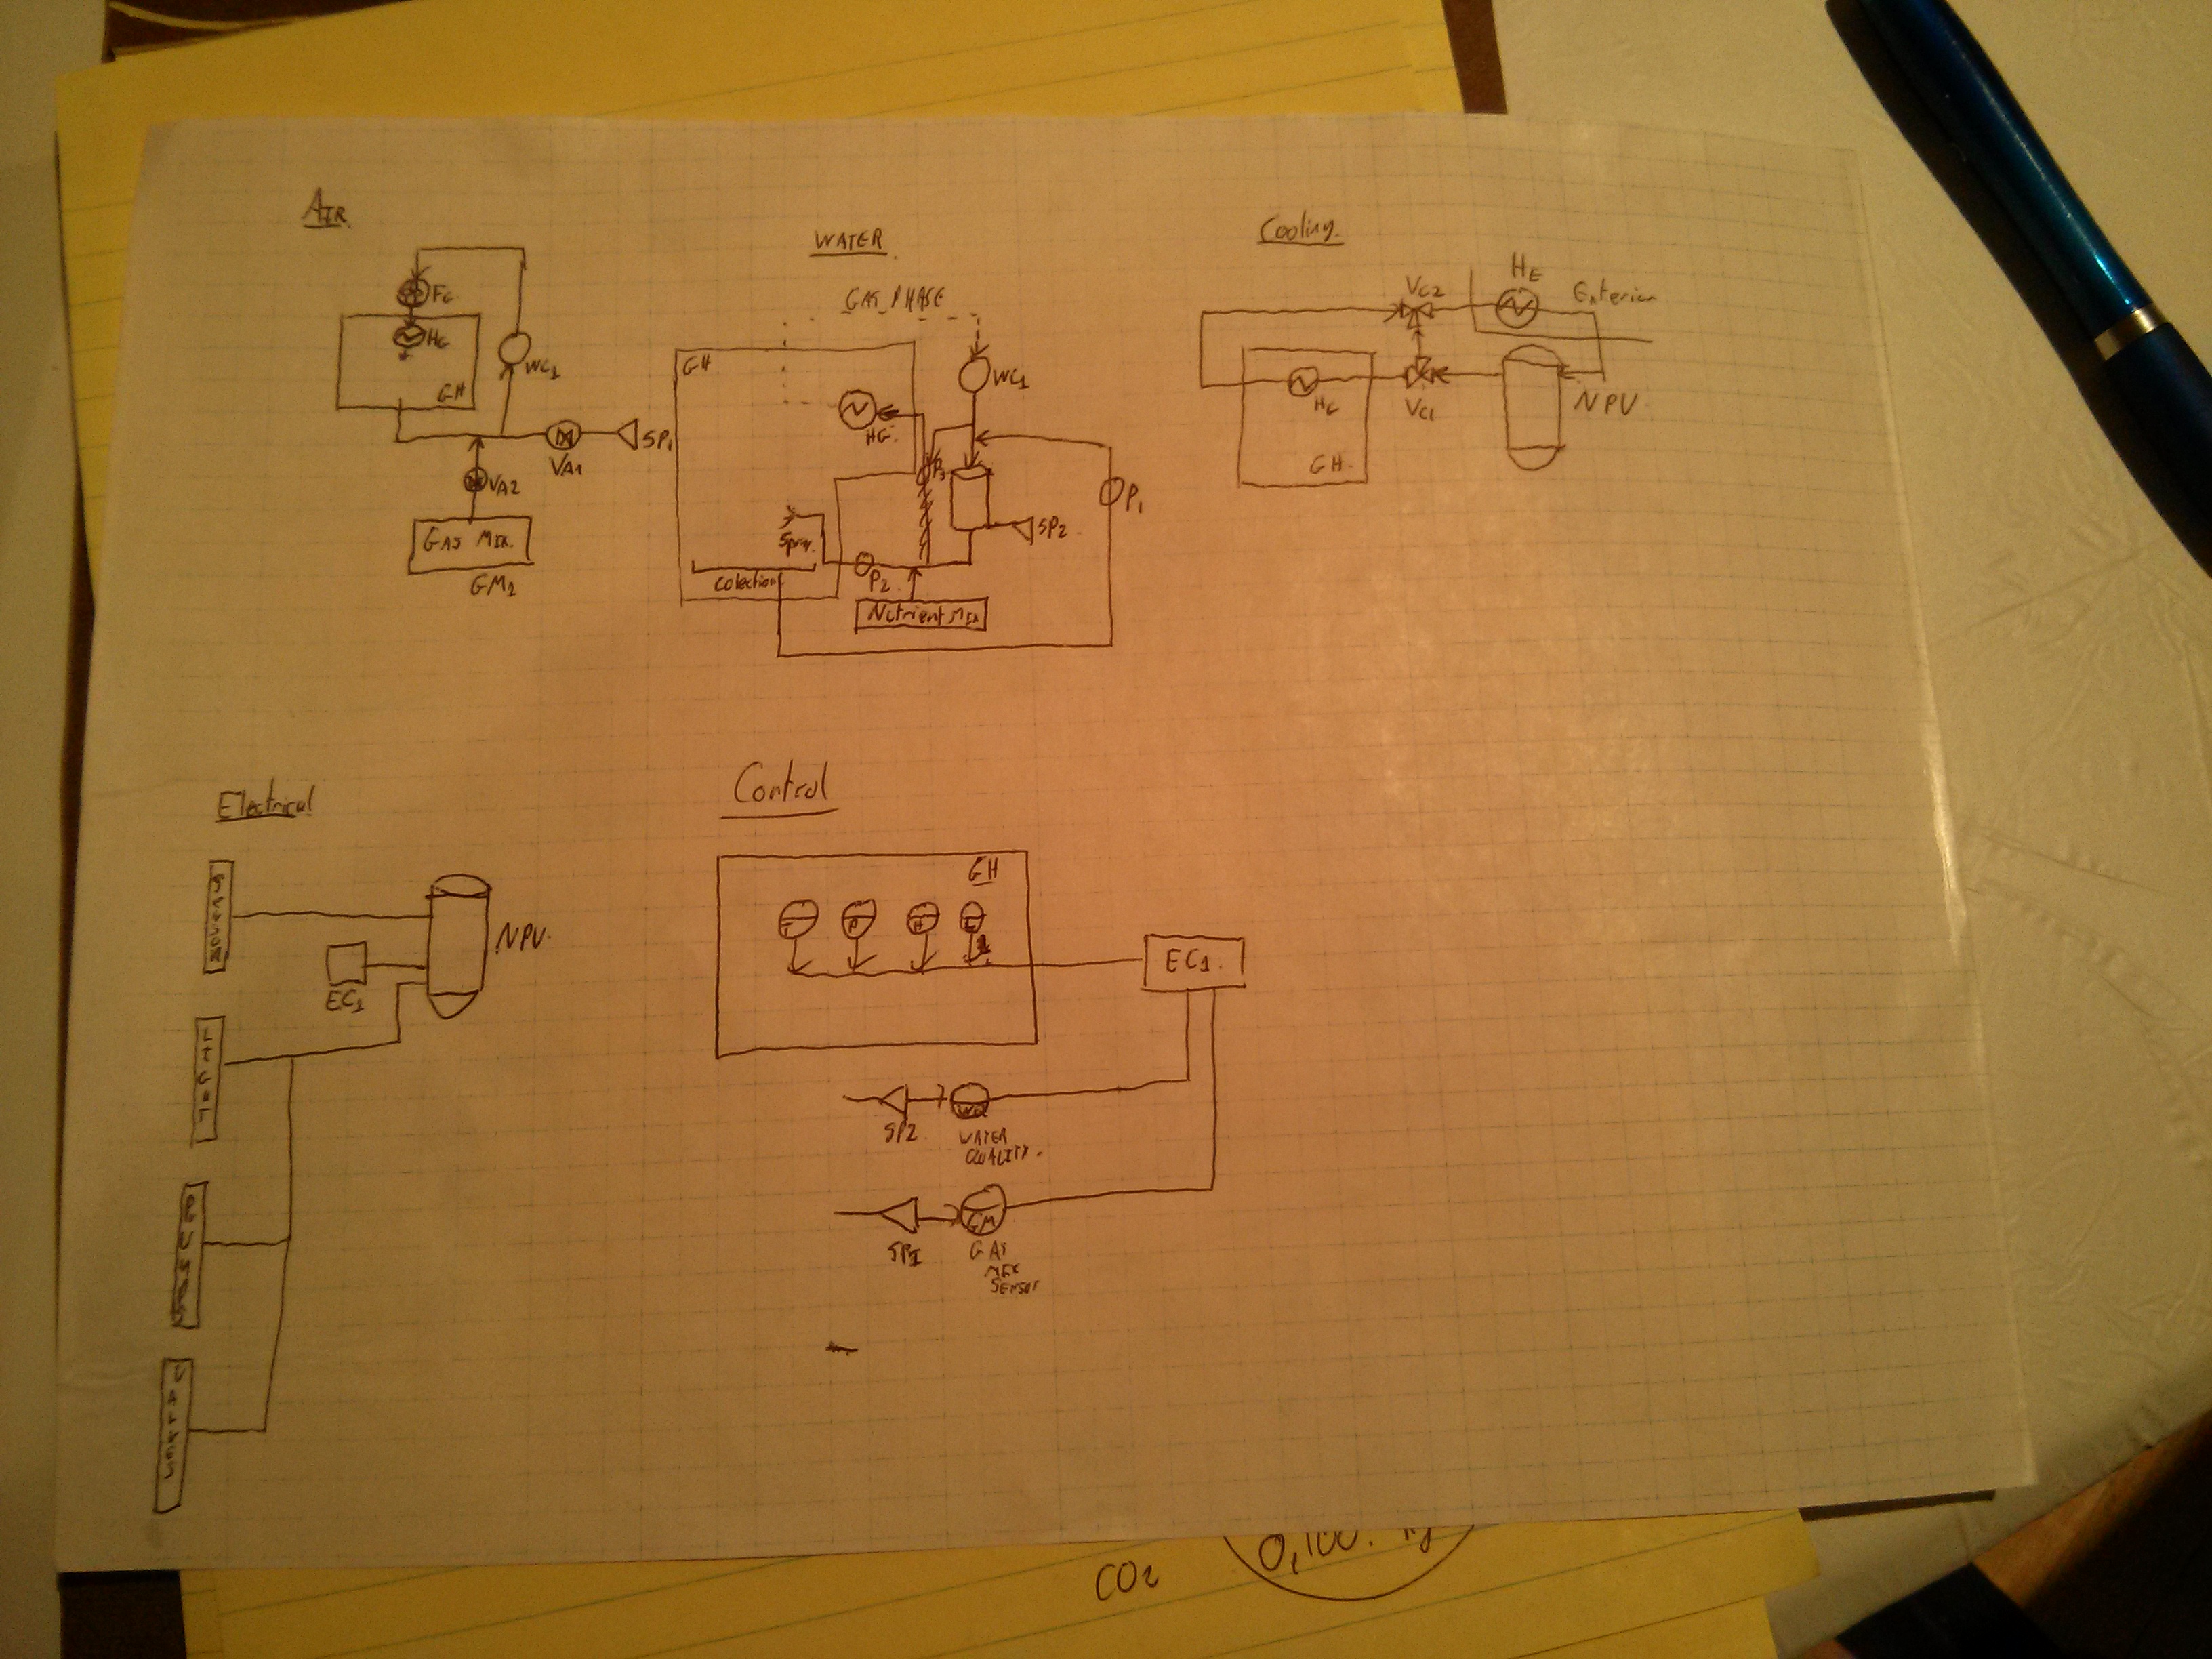 AIR
FG
HG
GH
WC1
SP1
VA1
VA2
GAS MIX.
GM1
WATER
GAS PHASE
GH
WC1
HG
P3
SP2
P1
Spray.
P2.
colection
Nutrient Mix
Cooling.
HE
Exterior
VC2
HG
VC1
NPV
GH
Electrical
NPV.
EC1
Control
GH
T
P
H
L
EC1.
WQ
SP2.
WATER
QUALITY.
GM
SP1
GAS
MIX
SENSOR
CO2
0,100.